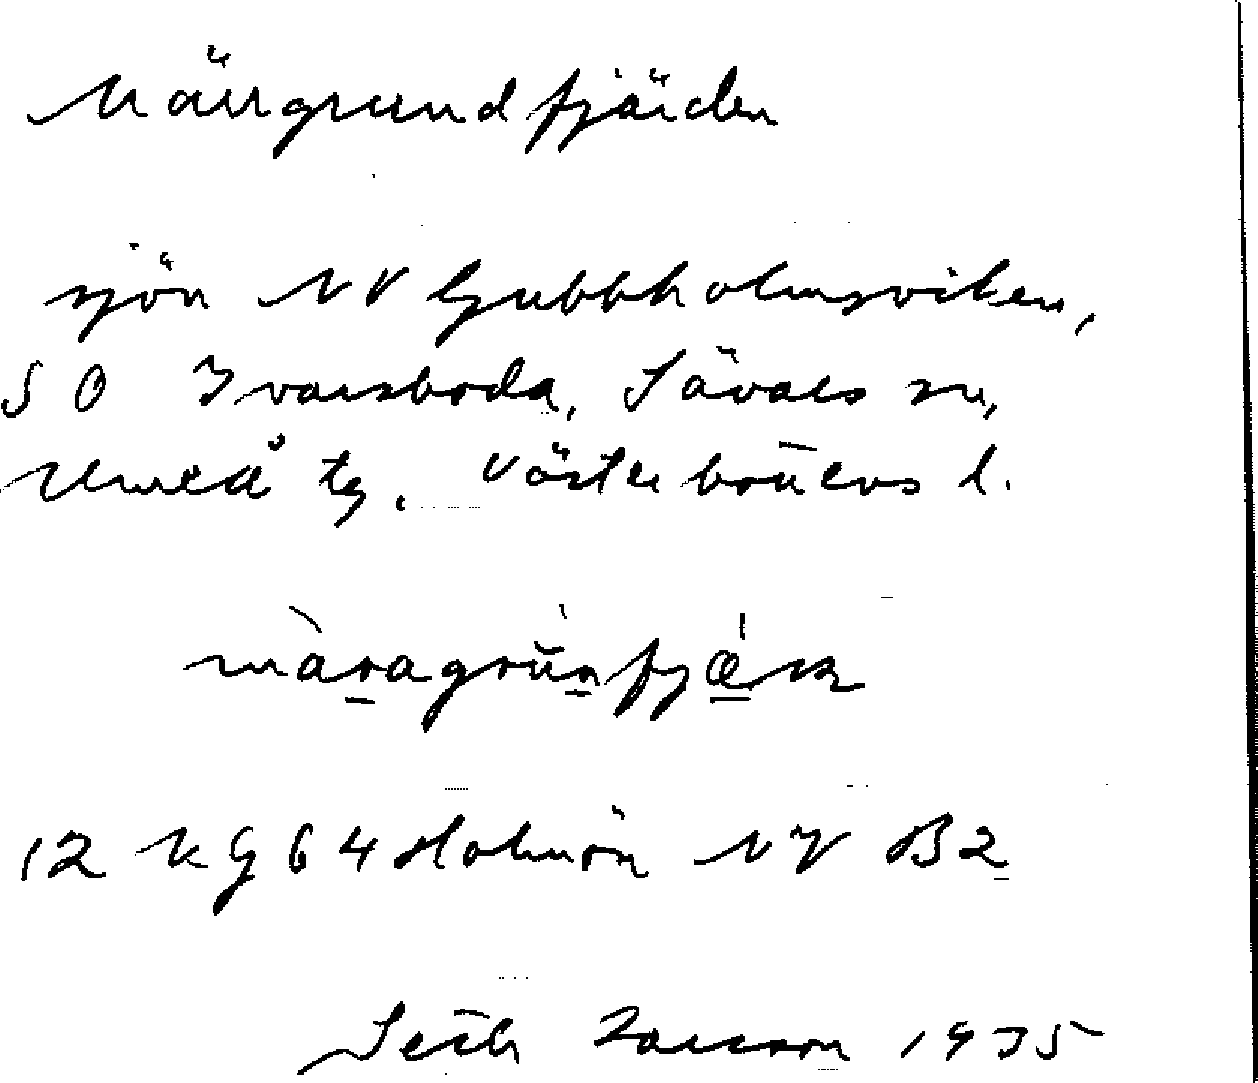 Märrgrundfjärden
sjön NV Gubbholmsviken,
SO Ivarsboda, Sävars sn,
Umeå tg. Västerbottens l.
màragrŭnfjæ̀ɳ
12 KG 64 Holmön NV B2
Seth Larsson 1935